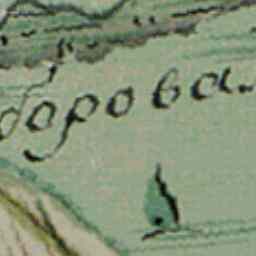 дорова.